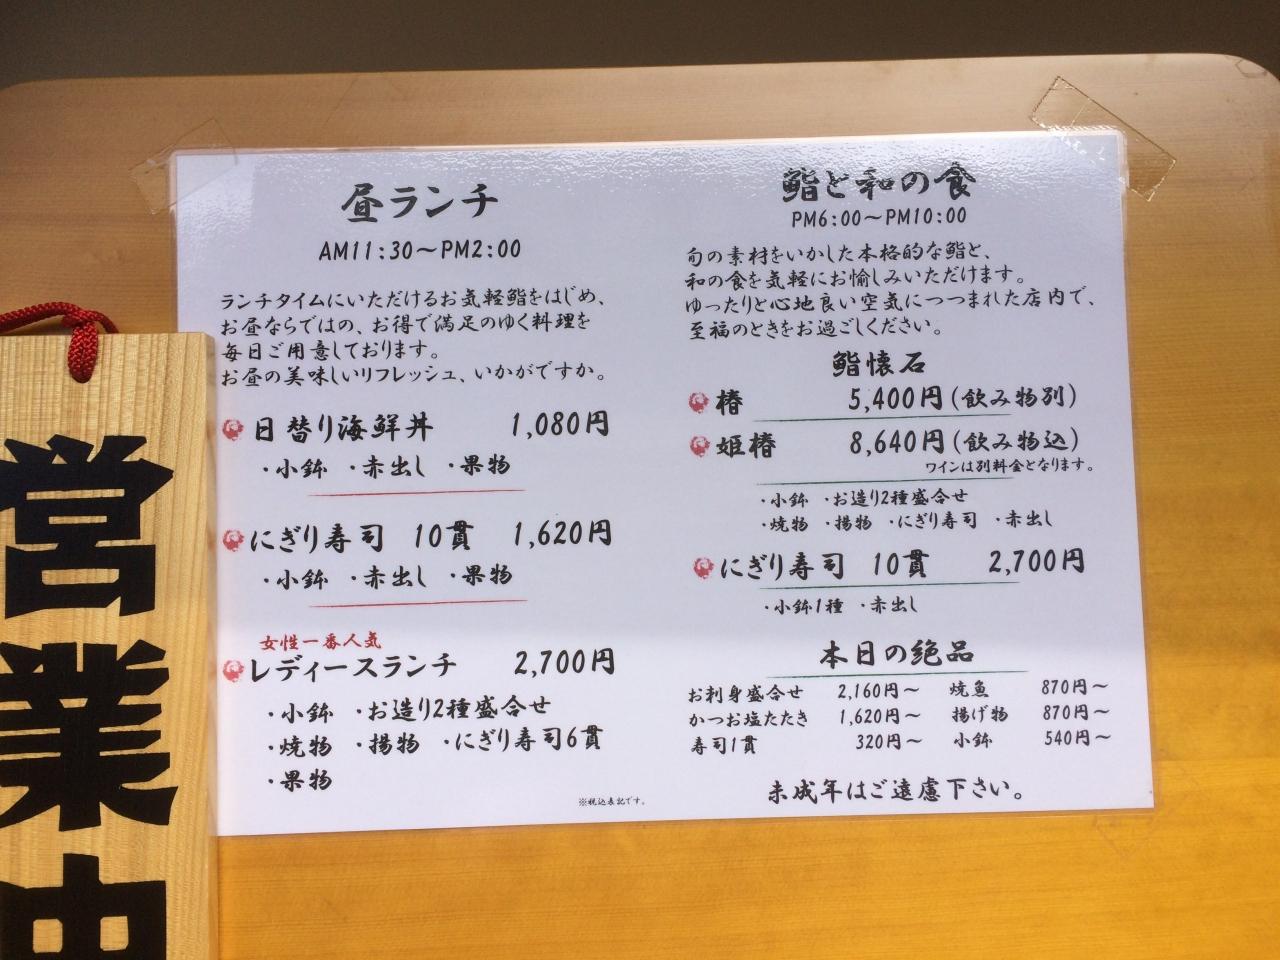 昼ランチ
AM11:30～PM2:00
ランチタイムにいただけるお気軽鮨をはじめ、
お昼ならではの、お得で満足のゆく料理を
毎日ご用意しております。
お昼の美味しいリフレッシュ、いかがですか。
日替り海鮮丼 1,080円
・小鉢 ・赤出し ・果物
にぎり寿司 10貫 1,620円
・小鉢 ・赤出し ・果物
女性一番人気
レディースランチ 2,700円
・小鉢 ・お造り2種盛合せ
・焼物 ・揚物 ・にぎり寿司6貫
・果物
※税込表記です。
鮨と和の食
PM6:00～PM10:00
旬の素材をいかした本格的な鮨と、
和の食を気軽にお愉しみいただけます。
ゆったりと心地良い空気につつまれた店内で、
至福のときをお過ごしください。
鮨懐石
椿 5,400円(飲み物別)
姫椿 8,640円(飲み物込)
ワインは別料金となります。
・小鉢 ・お造り2種盛合せ
・焼物 ・揚物 ・にぎり寿司 ・赤出し
にぎり寿司 10貫 2,700円
・小鉢1種 ・赤出し
本日の絶品
お刺身盛合せ 2,160円～ 焼魚 870円～
かつお塩たたき 1,620円～ 揚げ物 870円～
寿司1貫 320円～ 小鉢 540円～
未成年はご遠慮下さい。
営業中